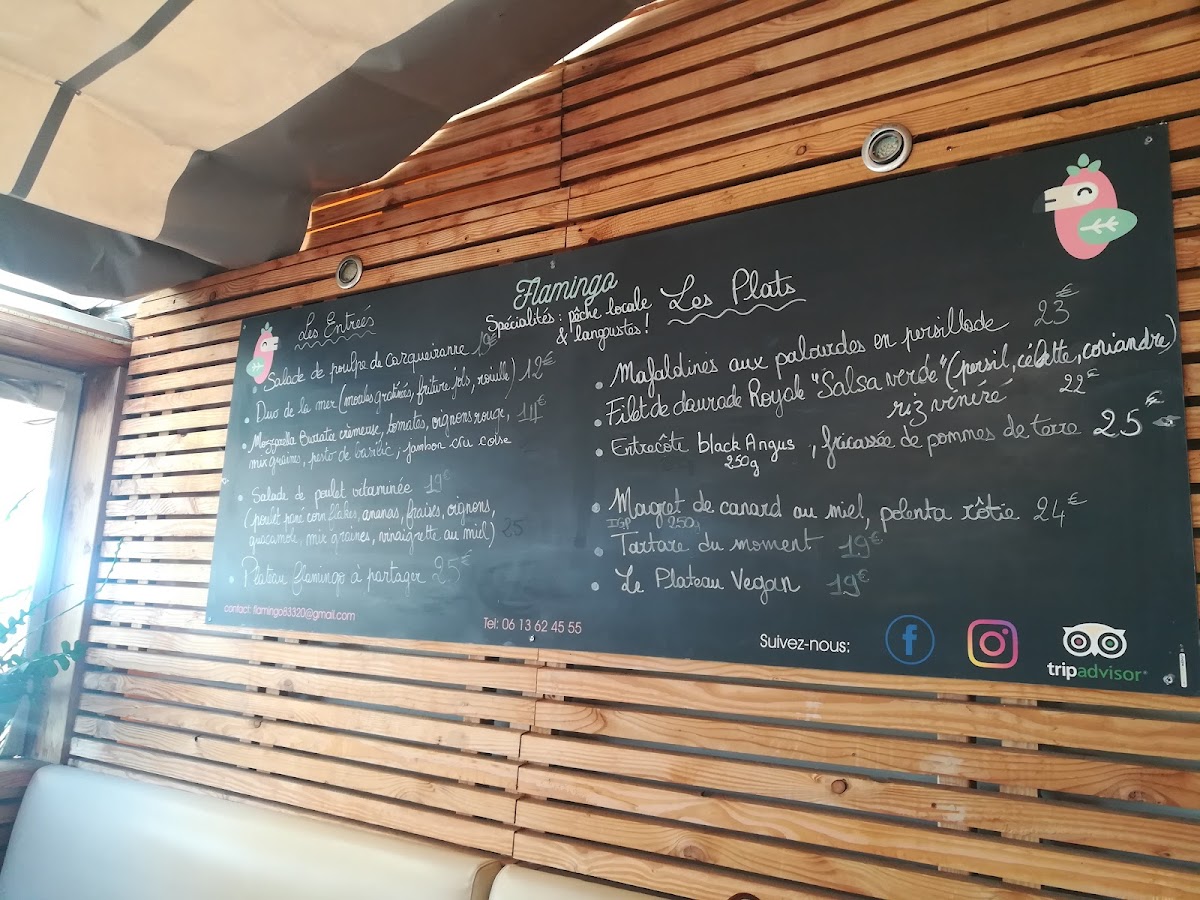 Flamingo
Spécialités: pêche locale
& langoustes!
Les Entrées
Salade de poulpe de carqueiranne 19€
Duo de la mer (moules gratinées, friture jols, rouille) 12€
Mozzarella Burrata crèmeuse, tomates, oignons rouge,
mix graines, pesto de basilic, jambon cru corse
Salade de poulet vitaminée 19€
(poulet pané corn flakes, ananas, fraises, oignons,
guacamole, mix graines, vinaigrette au miel)
Plateau flamingo à partager 25€
Les Plats
Mafaldines aux palourdes en persillade 23€
Filet de daurade Royale "Salsa verde" (persil, célette, coriandre)
riz vénéré 22€
Entrecôte black Angus, fricassée de pommes de terre 25€
250g
Magret de canard au miel, polenta rôtie 24€
IGP 250g
Tartare du moment 19€
Le Plateau Vegan 19€
contact: flamingo83320@gmail.com
Tel: 06 13 62 45 55
Suivez-nous:
f
tripadvisor